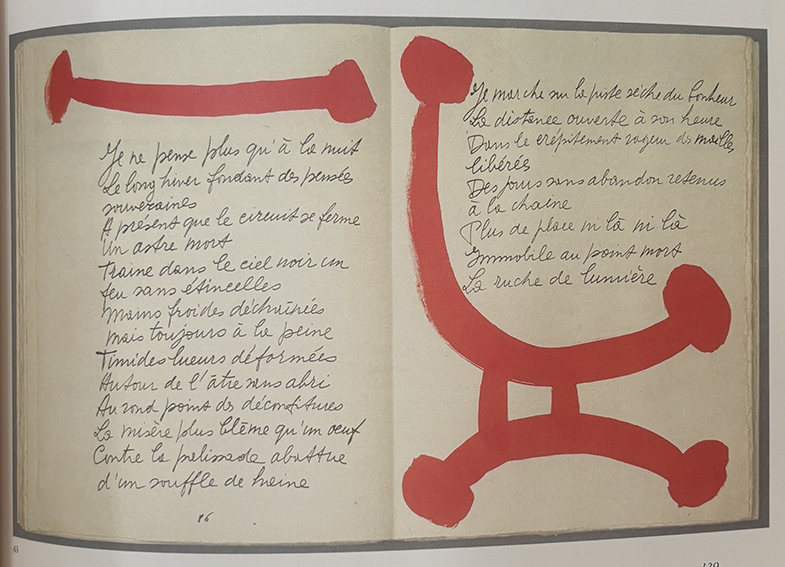 Je ne pense plus qu'à la nuit
Le long hiver fondant des pensées
souveraines
A présent que le circuit se ferme
Un astre mort
Traine dans le ciel noir un
feu sans étincelles
Mains froides déchaînées
mais toujours à la peine
Timides lueurs déformées
Autour de l'âtre sans abri
Au rond point des déconfitures
La misère plus blême qu'un oeuf
Contre la palissade abattue
d'un souffle de haine
86
Je marche sur la piste sèche du bonheur
La distance ouverte à son heure
Dans le crépitement rageur des mailles
libérés
Des jours sans abandon retenus
à la chaine
Plus de place ni là ni là
Immobile au point mort
La ruche de lumière
129